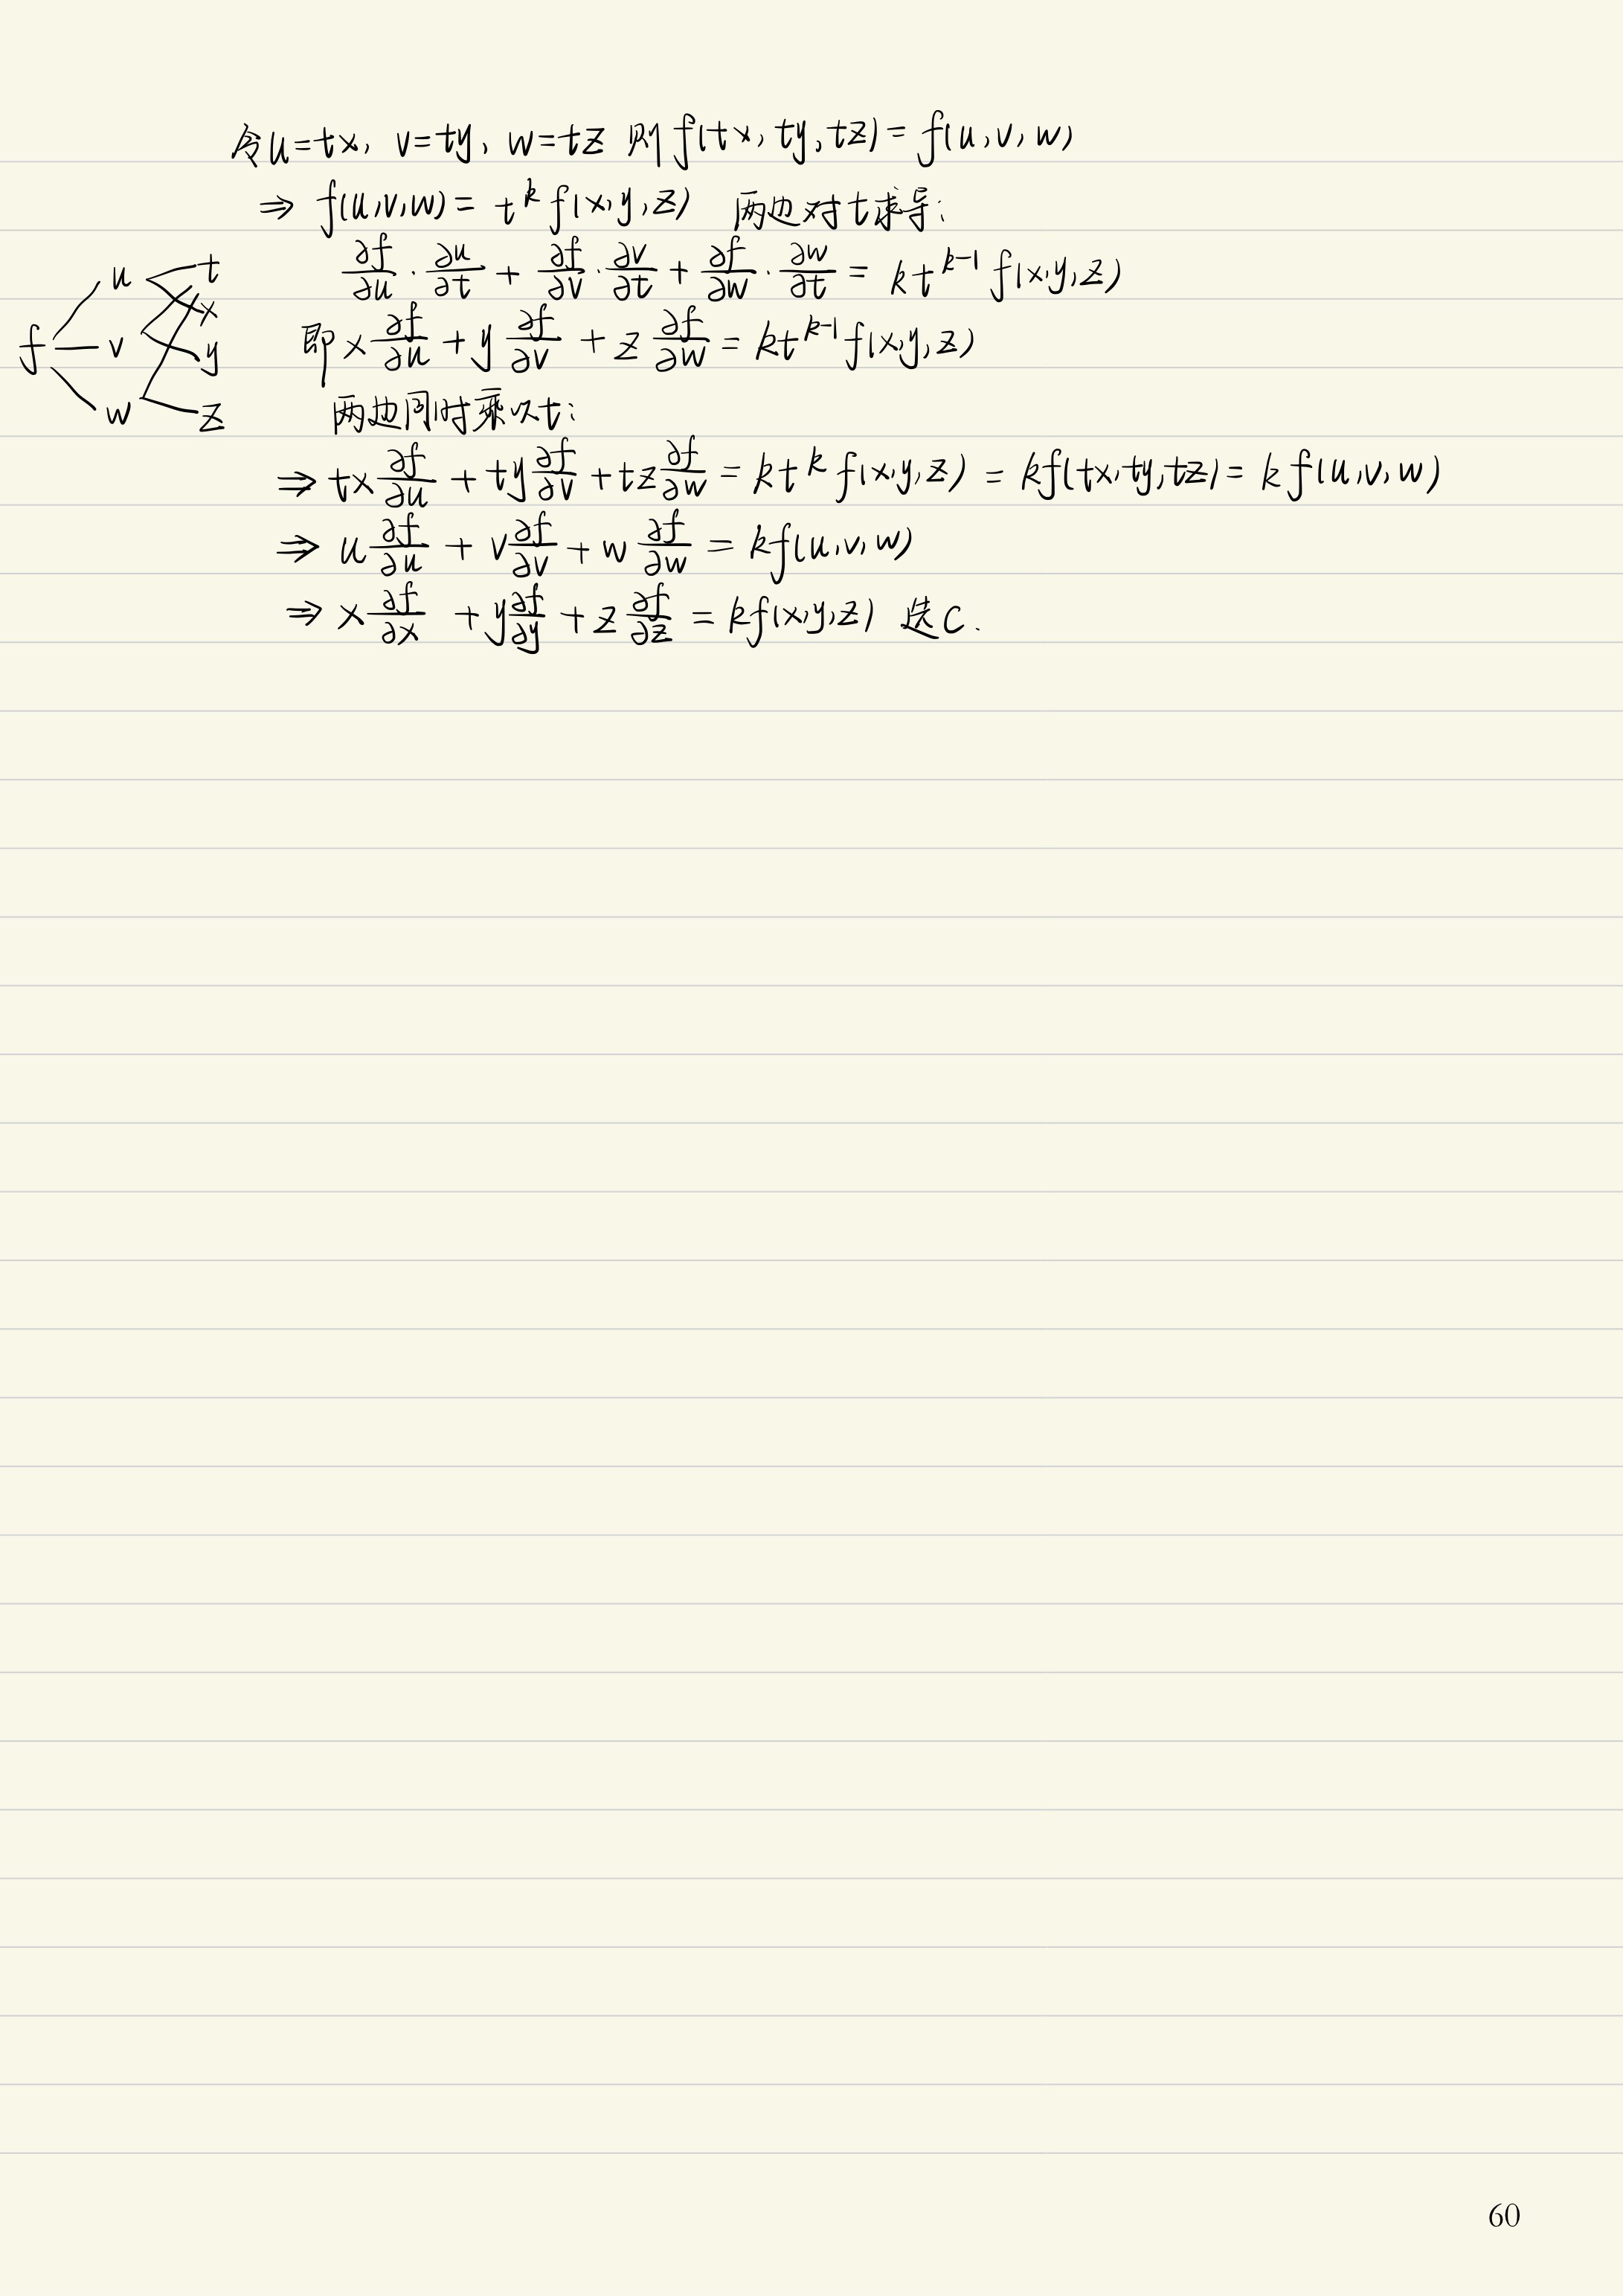 令u=tx, v=ty, w=tz 则 f(tx, ty, tz) = f(u, v, w)
⇒ f(u,v,w) = t^k f(x,y,z) 两边对t求导:
∂f/∂u · ∂u/∂t + ∂f/∂v · ∂v/∂t + ∂f/∂w · ∂w/∂t = kt^{k-1} f(x,y,z)
f u v w t x y z
即 x ∂f/∂u + y ∂f/∂v + z ∂f/∂w = kt^{k-1} f(x,y,z)
两边同时乘以t:
⇒ tx ∂f/∂u + ty ∂f/∂v + tz ∂f/∂w = kt^k f(x,y,z) = kf(tx,ty,tz) = kf(u,v,w)
⇒ u ∂f/∂u + v ∂f/∂v + w ∂f/∂w = kf(u,v,w)
⇒ x ∂f/∂x + y ∂f/∂y + z ∂f/∂z = kf(x,y,z) 选C.
60